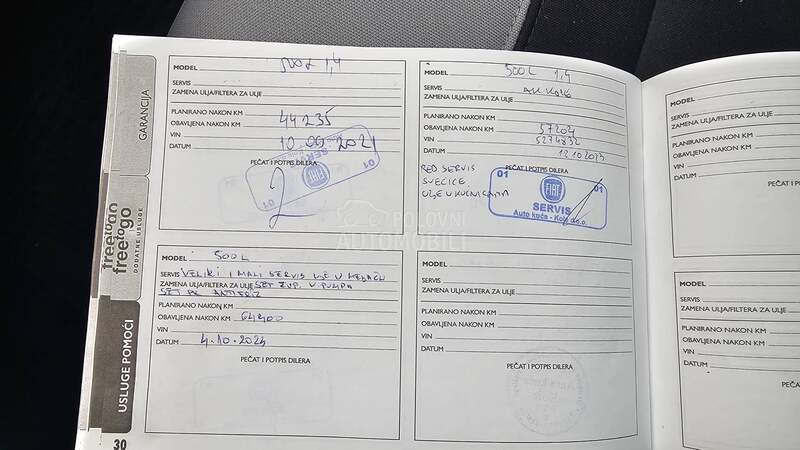 GARANCIJA
freetogo
freetogo
DODATNE USLUGE
USLUGE POMOĆI
30
MODEL 500L 1,4
SERVIS
ZAMENA ULJA/FILTERA ZA ULJE
PLANIRANO NAKON KM
OBAVLJENA NAKON KM 44235
VIN
DATUM 10.09.2021
PEČAT I POTPIS DILERA
01
FIAT
SERVIS
01
MODEL 500L 1,4
SERVIS
ZAMENA ULJA/FILTERA ZA ULJE
PLANIRANO NAKON KM
OBAVLJENA NAKON KM 57204
VIN 5274832
DATUM 12.10.2023
PEČAT I POTPIS DILERA
RED SERVIS
SVEĆICE
ULJE U KUĆNICAMA
01
FIAT
01
SERVIS
Auto kuća - Kole d.o.o.
MODEL 500L
SERVIS VELIKI I MALI SERVIS ULJE U MENJAČU
ZAMENA ULJA/FILTERA ZA ULJE SET ZUP. V. PUMPA
SET PK ANTIFRIZ
PLANIRANO NAKON KM
OBAVLJENA NAKON KM 64900
VIN
DATUM 4.10.2024
PEČAT I POTPIS DILERA
MODEL
SERVIS
ZAMENA ULJA/FILTERA ZA ULJE
PLANIRANO NAKON KM
OBAVLJENA NAKON KM
VIN
DATUM
PEČAT I POTPIS DILERA
MODEL
SERVIS
ZAMENA ULJA/FI
PLANIRANO NAK
OBAVLJENA NAK
VIN
DATUM
PEČAT
MODEL
SERVIS
ZAMENA ULJA/FILT
PLANIRANO NAKO
OBAVLJENA NAKO
VIN
DATUM
PEČAT I
POLOVNI
AUTOMOBILI